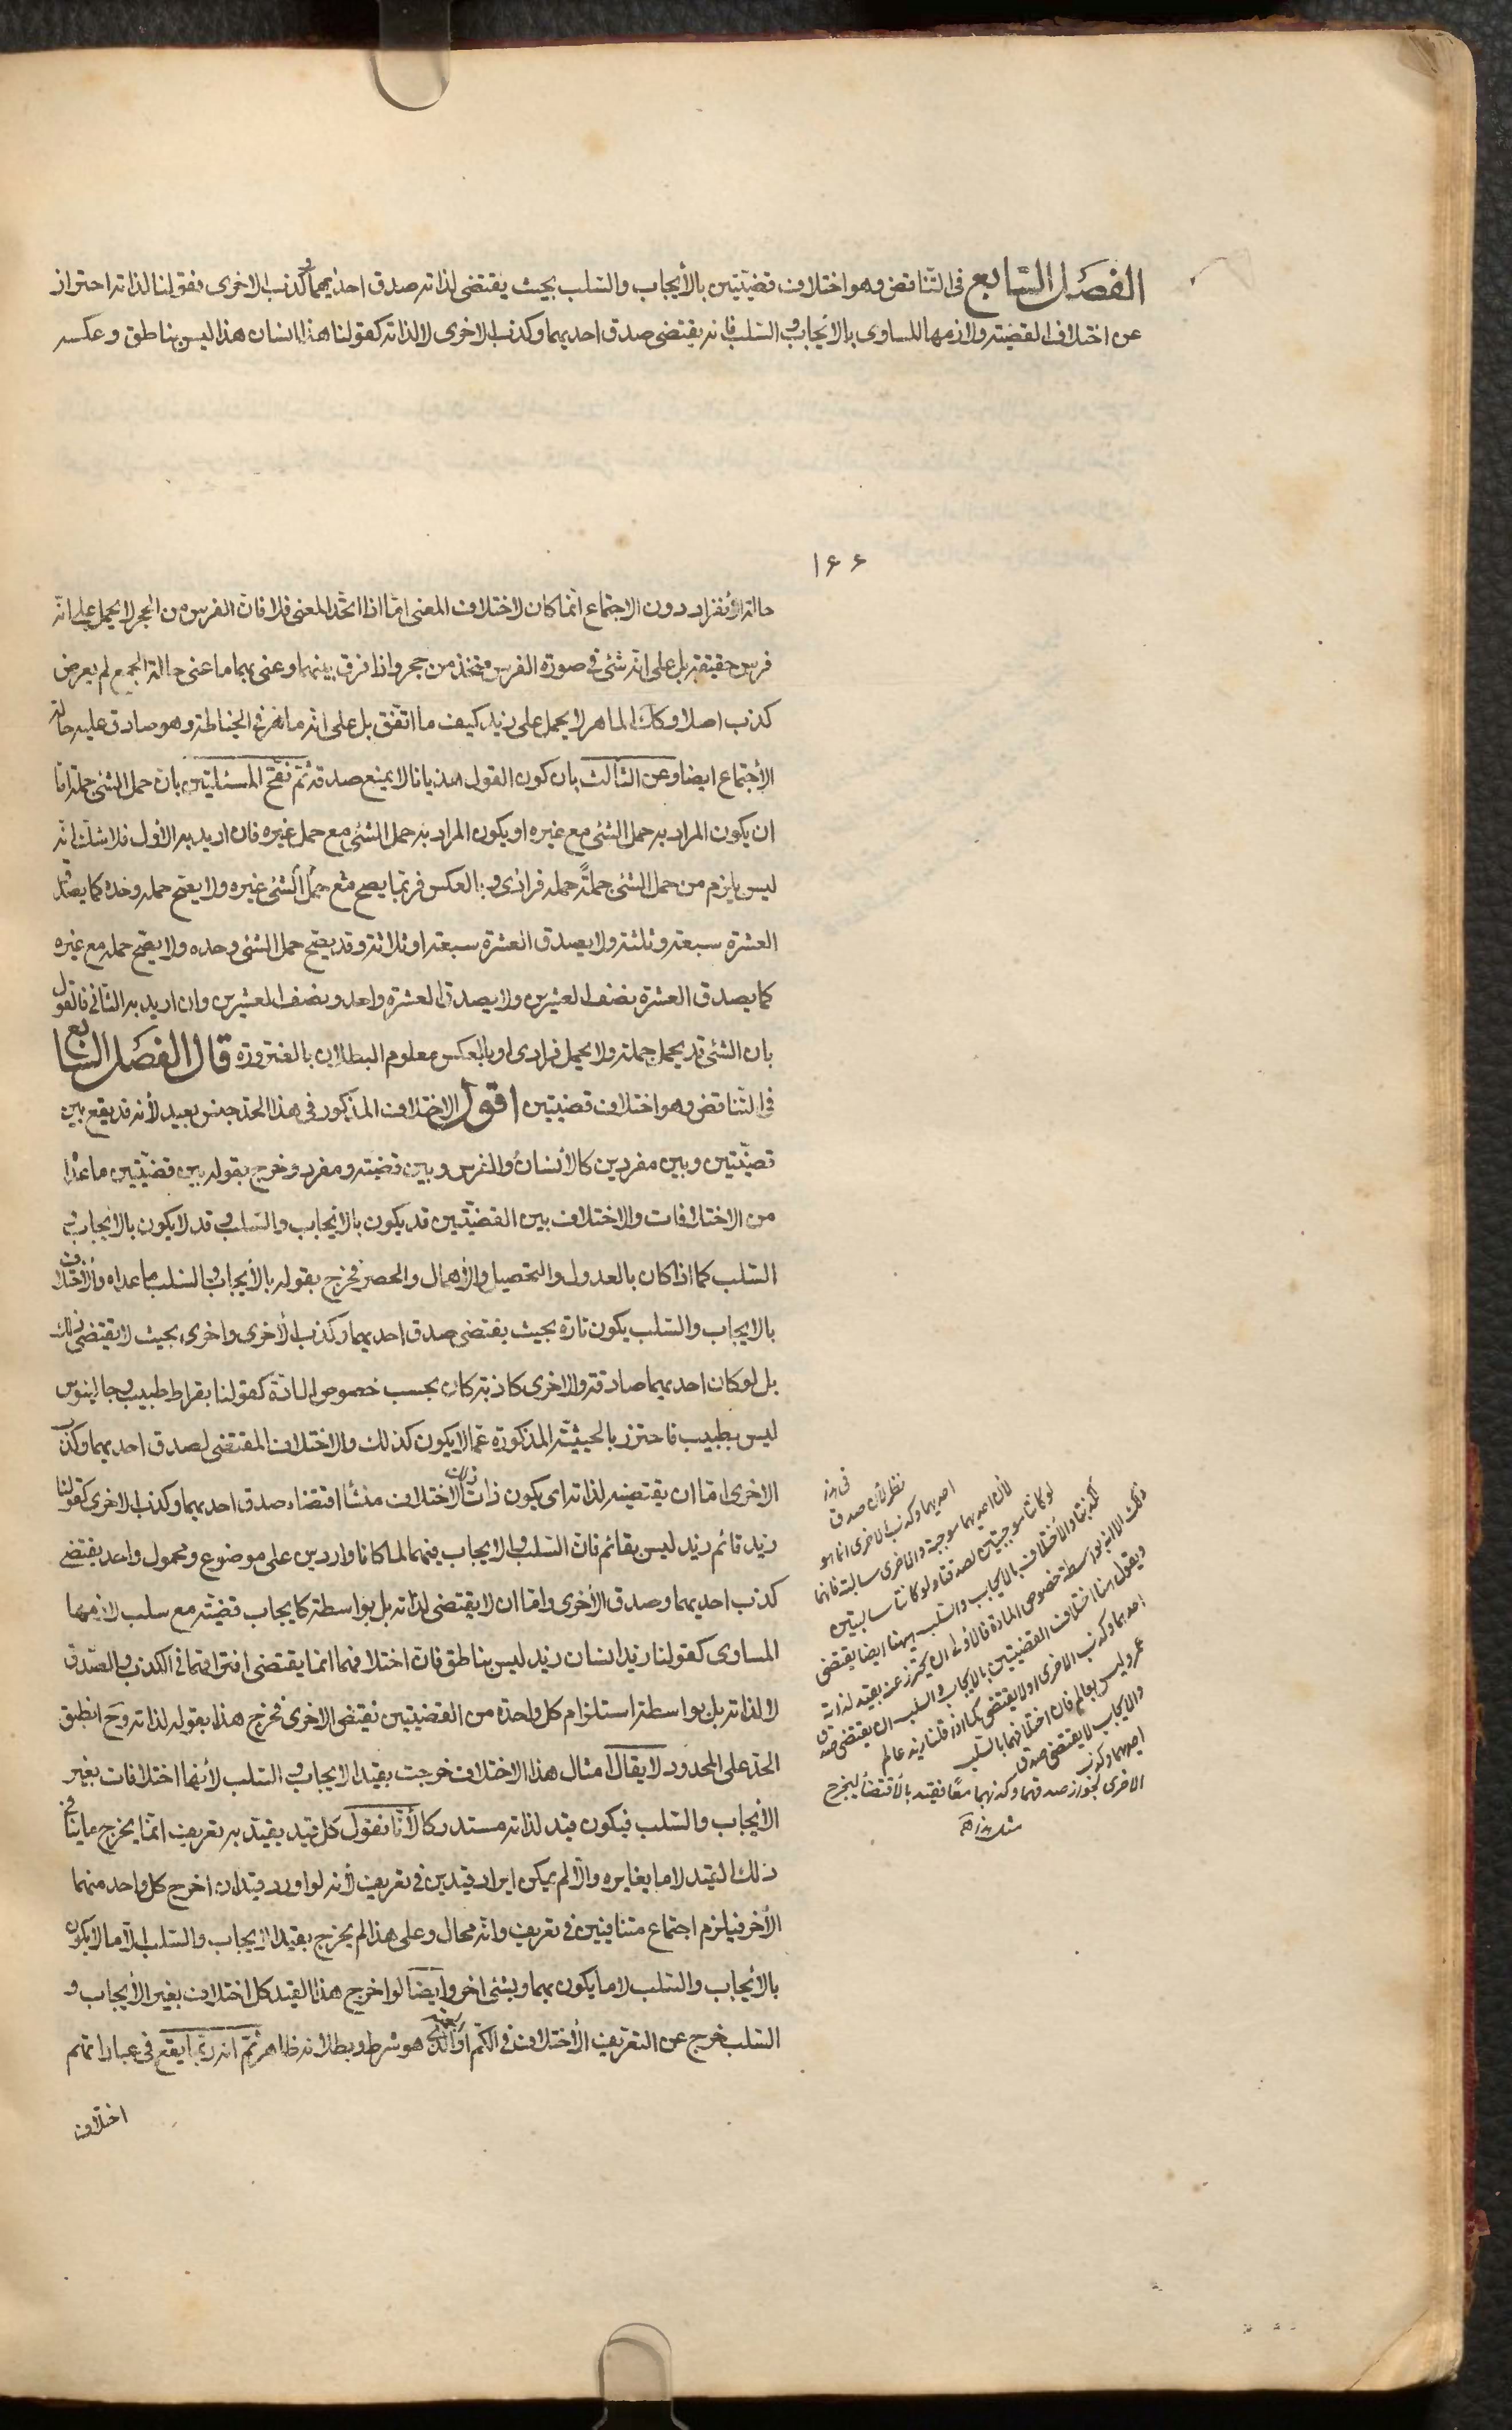 الفصل السابع فى التناقض وهو اختلاف قضيّتين بالأيجاب والسّلب بحيث يقتضى لذاته صدق احديهما وكذب الاخرى فقولنا لذاته احتراز
عن اختلاف القضيّة ولازمها المساوى بالايجاب والسّلب فانه يقتضى صدق احديهما وكذب الاخرى لا لذاته كقولنا هذا انسان هذا ليس بناطق وعكسه
١۶۶
حالة الأنفراد دون الاجتماع انّما كان لاختلاف المعنى امّا اذا اتّحد المعنى فلا فانّ الفرس من الحجر لا يحمل عليه انّه
فرس حقيقة بل على انّه شئ فى صورة الفرس متخذ من حجر واذا فرق بينهما وعنى بهما ما عنى حالة الجمع لم يعرض
كذب اصلا وكذا الماهر لا يحمل على زيد كيف ما اتّفق بل على انّه ماهر فى الخياطة وهو صادق عليه حالة
الأجتماع ايضا وعن الثالث بان كون القول هذيانا لا يمنع صدقه ثمّ نقّح المسئلتين بانّ حمل الشئ جملة امّا
ان يكون المراد به حمل الشئ مع غيره او يكون المراد به حمل الشئ مع حمل غيره فان اريد به الاوّل فلا شكّ انّه
ليس يلزم من حمل الشئ جملةً حمله فرادى وبالعكس فربّما يصح حمل الشئ مع غيره ولا يصحّ حمله وحده كما يصدق
العشرة سبعة وثلثة ولا يصدق العشرة سبعة او ثلاثة وقد يصحّ حمل الشئ وحده ولا يصحّ حمله مع غيره
كما يصدق العشرة نصف العشرين ولا يصدق العشرة واحد ونصف العشرين وان اريد به الثانى فالقول
بان الشئ قد يحمل جملة ولا يحمل فرادى او بالعكس معلوم البطلان بالضرورة قال الفصل السّابع
فى التّناقض وهو اختلاف قضيّتين اقول الاختلاف المذكور فى هذا الحدّ جنس بعيد لأنه قد يقع بين
قضيّتين وبين مفردين كالأنسان والفرس وبين قضيّة ومفرد وخرج بقوله بين قضيّتين ما عدا
من الاختلافات والاختلاف بين القضيّتين قد يكون بالايجاب والسّلب وقد لا يكون بالايجاب و
السّلب كما اذا كان بالعدول والتحصيل والأهمال والحصر فخرج بقوله بالأيجاب والسّلب ما عداه والأختلاف
بالايجاب والسّلب يكون تارة بحيث يقتضى صدق احديهما وكذب الأخرى واخرى بحيث لا يقتضى ذلك
بل لو كان احديهما صادقة والاخرى كاذبة كان بحسب خصوص المادّة كقولنا بقراط طبيب وجالينوس
ليس بطبيب فاحترز بالحيثيّة المذكورة عمّا لا يكون كذلك والاختلاف المقتضى لصدق احديهما وكذب
الاخرى امّا ان يقتضيه لذاته اى يكون ذات الاختلاف منشأ اقتضاء صدق احديهما وكذب الاخرى كقولنا
زيد قائم زيد ليس بقائم فانّ السّلب والايجاب فيهما لما كانا واردين على موضوع ومحمول واحد يقتضى
كذب احديهما وصدق الأخرى وامّا ان لا يقتضى لذاته بل بواسطة كايجاب قضيّة مع سلب لازمها
المساوى كقولنا زيد انسان زيد ليس بناطق فانّ اختلافهما انّما يقتضى افتراقهما فى الكذب والصّدق
لا لذاته بل بواسطة استلزام كلّ واحدة من القضيّتين نقيض الاخرى فخرج هذا بقوله لذاته وح انطبق
الحدّ على المحدود لا يقال امثال هذا الاختلاف خرجت بقيد الايجاب والسّلب لأنّها اختلافات بغير
الأيجاب والسّلب فيكون قيد لذاته مستدركا لأنّا نقول كلّ قيد يقيّد به تعريف انّما يخرج ما ينافى
ذلك القيد لا ما يغايره والّا لم يكن ايراد قيدين فى تعريف لأنه لو اورد قيدان اخرج كلّ واحد منهما
الأخر فيلزم اجتماع متنافيين فى تعريف وانّه محال وعلى هذا لم يخرج بقيد الايجاب والسّلب الّا ما لا يكون
بالأيجاب والسّلب لا ما يكون بهما وبشئ اخر وايضا لو اخرج هذا القيد كلّ اختلاف بغير الأيجاب و
السّلب خرج عن التعريف الأختلاف فى الكمّ هو شرط وبطلانه ظاهر ثمّ انه ربّما يقع فى عباراتهم
اختلاف
فى هذا
نظر لأن صدق
احديهما وكذب الاخرى انما هو
لأن احديهما موجبة والاخرى سالبة فانهما
لو كانتا موجبتين لصدقتا ولو كانتا سالبتين
لكذبتا والأختلاف بالايجاب والسّلب ههنا ايضا يقتضى
ذلك الا انه بواسطة خصوص المادة فالأولى ان يحترز عنه بقيد لذاته
ويقول هنا اختلاف القضيتين بالايجاب والسلب ان يقتضى صدق
احديهما وكذب الاخرى او لا يقتضى كما اذا قلنا زيد عالم
عمرو ليس بعالم فان اختلافهما بالسّلب
والايجاب لا يقتضى صدق
احديهما وكذب
الاخرى لجواز صدقهما وكذبهما معًا فقيد بالأقتضاء ليخرج
مثل هذا